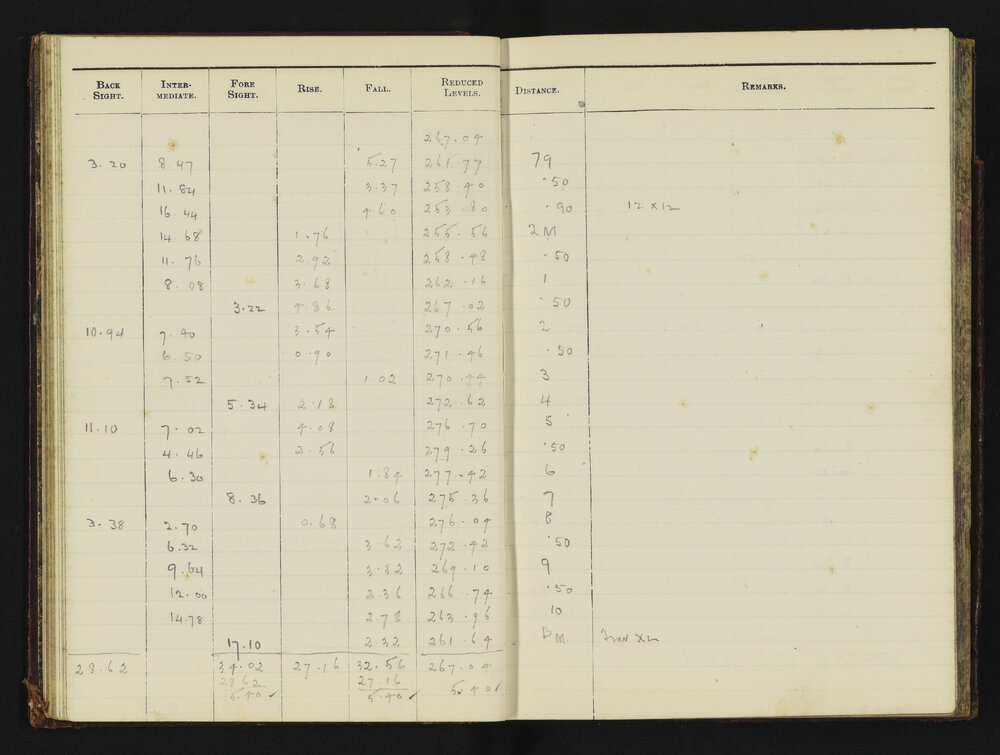 BACK SIGHT. INTER-MEDIATE. FORE SIGHT. RISE. FALL. REDUCED LEVELS. DISTANCE. REMARKS.
267.04
3.20 8.47 5.27 261.77 79
11.84 3.37 258.40 .50
16.44 4.60 253.80 .90 12 x 12
14.68 1.76 255.56 2 M
11.76 2.92 258.48 .50
8.08 3.68 262.16 1
3.22 4.86 267.02 .50
10.94 7.40 3.54 270.56 2
6.50 0.90 271.46 .50
7.52 1.02 270.44 3
5.34 2.18 272.62 4
11.10 7.02 4.08 276.70 5
4.46 2.56 279.26 .50
6.30 1.84 277.42 6
8.36 2.06 275.36 7
3.38 2.70 0.68 276.04 8
6.32 3.62 272.42 .50
9.64 3.32 269.10 9
12.00 2.36 266.74 .50
14.78 2.78 263.96 10
17.10 2.32 261.64 BM.
28.62 34.02 27.16 32.56 267.04
28.62 27.16
5.40 ✓ 5.40 ✓ 5.40 ✓